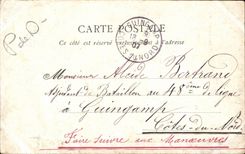 CARTE POSTALE
Ce côté est réservé à l'adresse
GUINGAMP
Monsieur Alcide Bertrand
Adjudant de Bataillon au 48ème de ligne
à Guingamp
Côtes-du-Nord
Faire suivre aux Manœuvres